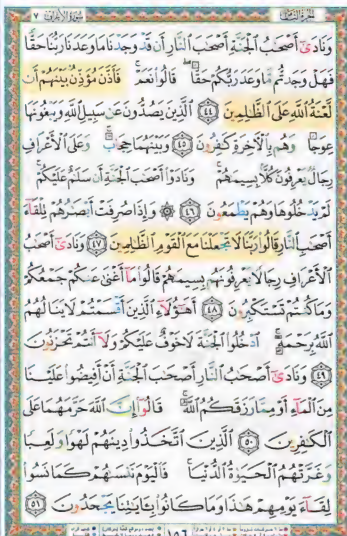 سورة الأعراف ٧
الجزء الثامن
وَنَادَىٰٓ أَصْحَٰبُ ٱلْجَنَّةِ أَصْحَٰبَ ٱلنَّارِ أَن قَدْ وَجَدْنَا مَا وَعَدَنَا رَبُّنَا حَقًّا
فَهَلْ وَجَدتُّم مَّا وَعَدَ رَبُّكُمْ حَقًّا ۖ قَالُوا۟ نَعَمْ ۚ فَأَذَّنَ مُؤَذِّنٌۢ بَيْنَهُمْ أَن
لَّعْنَةُ ٱللَّهِ عَلَى ٱلظَّٰلِمِينَ ٤٤ ٱلَّذِينَ يَصُدُّونَ عَن سَبِيلِ ٱللَّهِ وَيَبْغُونَهَا
عِوَجًا وَهُم بِٱلْءَاخِرَةِ كَٰفِرُونَ ٤٥ وَبَيْنَهُمَا حِجَابٌ ۚ وَعَلَى ٱلْأَعْرَافِ
رِجَالٌ يَعْرِفُونَ كُلًّۢا بِسِيمَىٰهُمْ ۚ وَنَادَوْا۟ أَصْحَٰبَ ٱلْجَنَّةِ أَن سَلَٰمٌ عَلَيْكُمْ ۚ
لَمْ يَدْخُلُوهَا وَهُمْ يَطْمَعُونَ ٤٦ ۞ وَإِذَا صُرِفَتْ أَبْصَٰرُهُمْ تِلْقَآءَ
أَصْحَٰبِ ٱلنَّارِ قَالُوا۟ رَبَّنَا لَا تَجْعَلْنَا مَعَ ٱلْقَوْمِ ٱلظَّٰلِمِينَ ٤٧ وَنَادَىٰٓ أَصْحَٰبُ
ٱلْأَعْرَافِ رِجَالًا يَعْرِفُونَهُم بِسِيمَىٰهُمْ قَالُوا۟ مَآ أَغْنَىٰ عَنكُمْ جَمْعُكُمْ
وَمَا كُنتُمْ تَسْتَكْبِرُونَ ٤٨ أَهَٰٓؤُلَآءِ ٱلَّذِينَ أَقْسَمْتُمْ لَا يَنَالُهُمُ
ٱللَّهُ بِرَحْمَةٍ ۚ ٱدْخُلُوا۟ ٱلْجَنَّةَ لَا خَوْفٌ عَلَيْكُمْ وَلَآ أَنتُمْ تَحْزَنُونَ
٤٩ وَنَادَىٰٓ أَصْحَٰبُ ٱلنَّارِ أَصْحَٰبَ ٱلْجَنَّةِ أَنْ أَفِيضُوا۟ عَلَيْنَا
مِنَ ٱلْمَآءِ أَوْ مِمَّا رَزَقَكُمُ ٱللَّهُ ۚ قَالُوٓا۟ إِنَّ ٱللَّهَ حَرَّمَهُمَا عَلَى
ٱلْكَٰفِرِينَ ٥٠ ٱلَّذِينَ ٱتَّخَذُوا۟ دِينَهُمْ لَهْوًا وَلَعِبًا
وَغَرَّتْهُمُ ٱلْحَيَوٰةُ ٱلدُّنْيَا ۚ فَٱلْيَوْمَ نَنسَىٰهُمْ كَمَا نَسُوا۟
لِقَآءَ يَوْمِهِمْ هَٰذَا وَمَا كَانُوا۟ بِـَٔايَٰتِنَا يَجْحَدُونَ ٥١
١٥٦